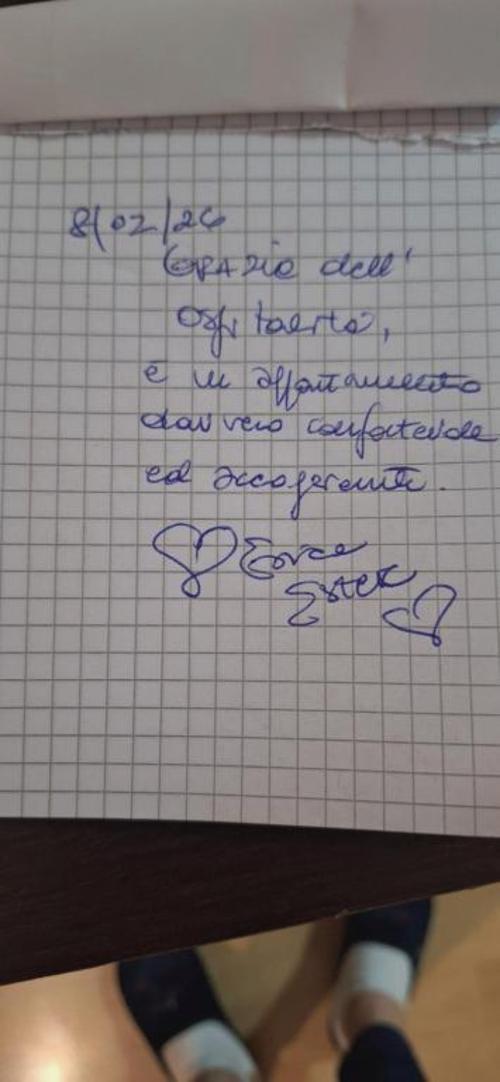 8/02/26
GRAZIE dell'
Ospitalità,
è un appartamento
davvero confortevole
ed accogente.
Ester